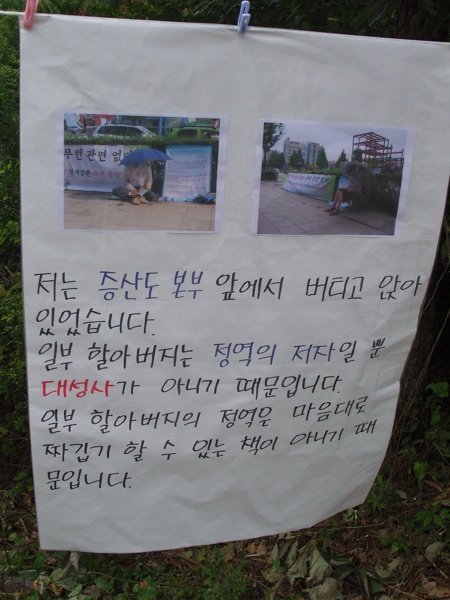 무런 관련 없
저는 증산도 본부 앞에서 버티고 앉아
있었습니다.
일부 할아버지는 정역의 저자일 뿐
대성사가 아니기 때문입니다.
일부 할아버지의 정역은 마음대로
짜깁기 할 수 있는 책이 아니기 때
문입니다.